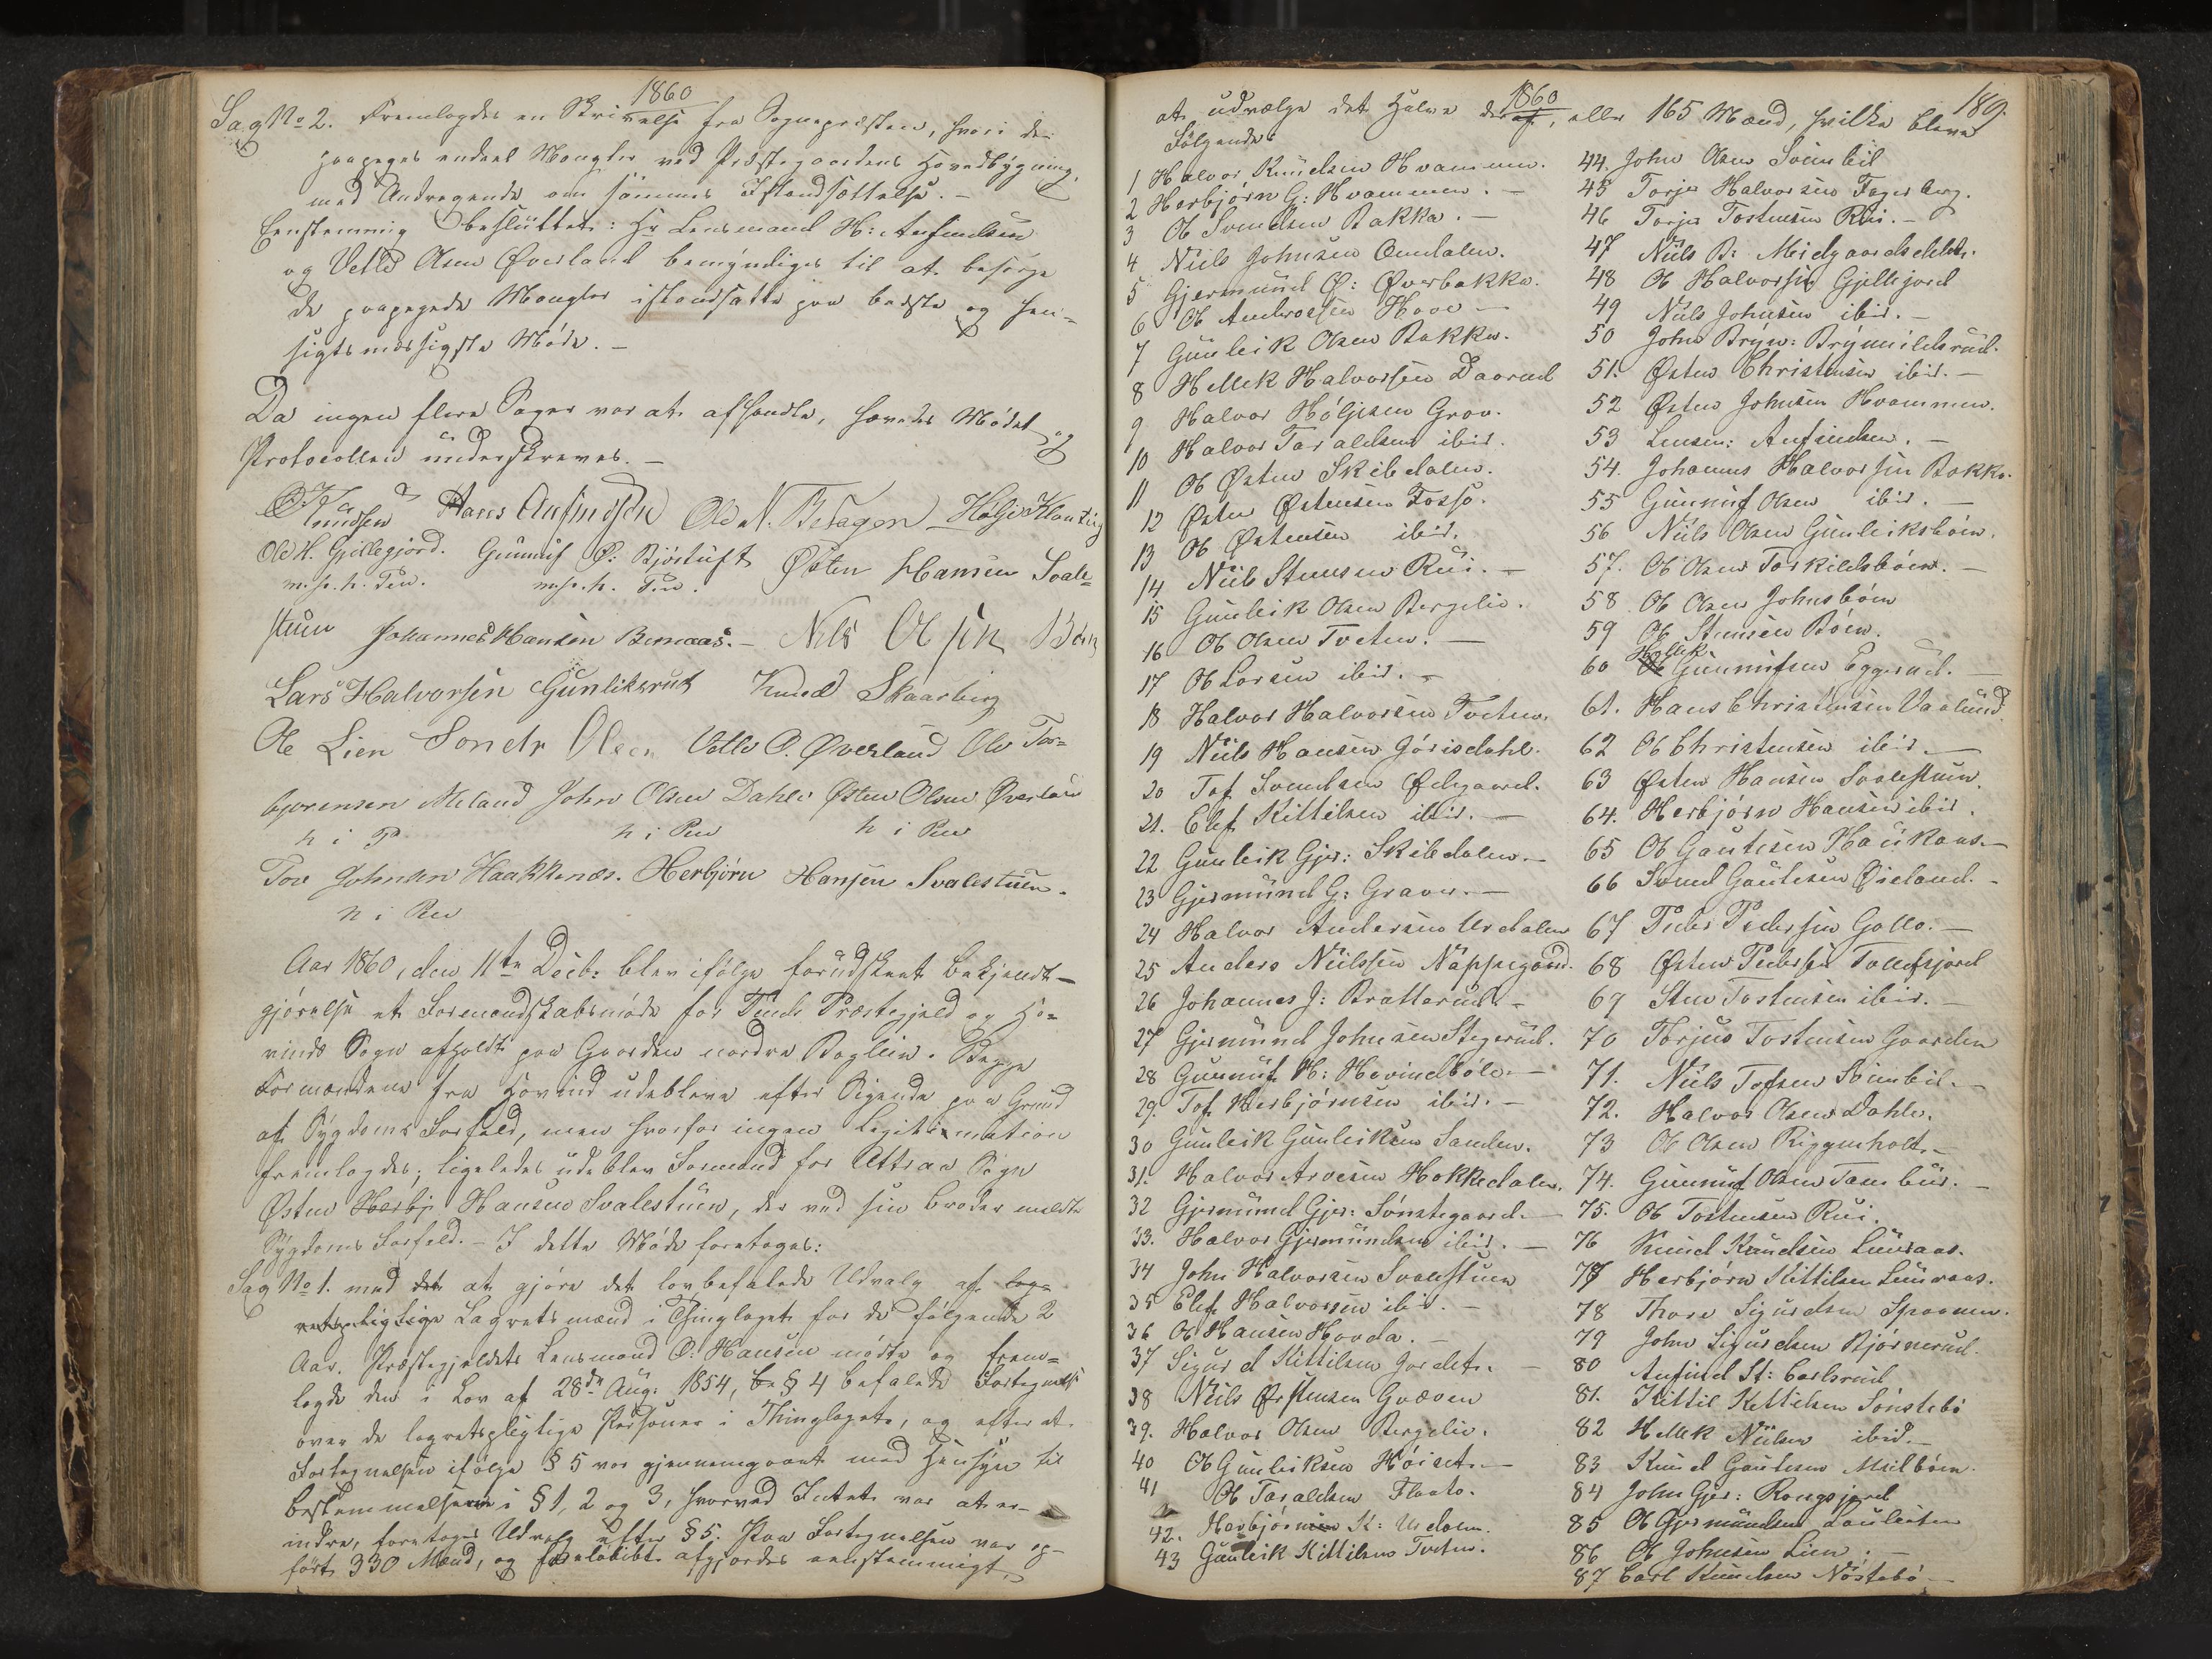 1860
Sag No 2. Fremlagdes en Skrivelse fra Sognepræsten, hvori der
paapeges endeel Mangler ved Præstegaardens Hovedbygning,
med Andragende om sammes Istandsættelse. –
Eenstemmig besluttet: Hr Lensmand H: Anfindsen
og Vetle Olsen Øverland bemyndiges til at besørge
de paapegede Mangler istandsatte paa bedste og hen=
sigtsmæssigste Maade. –
Da ingen flere Sager var at afhandle, hævedes Mødet og
Protocollen underskreves. –
Knudsen Hans Anfindsen Ole N. Bøhagen Hølje Klonteig
Ole H. Gjillegjord. Gunnuf O: Bjørtuft Østen Hansen Svale=
m. p. h. Pen. m. p. h. Pen.
stuen Johannes Hansen Bernaas. – Nils Olsen Bøen
Lars Halvorsen Gunliksrud Knud Skaarberg
Ole Lien Sondre Olsen Vetle O. Øverland Ole Tor=
bjørensen Meland John Olsen Dahle Østen Olsen Øverland
h i P h i Pen h i Pen
Tov Johnsen Haakkenæs. Herbjørn Hansen Svalestuen.
h i Pen
Aar 1860, den 11te Decb: blev ifølge forudskeet bekjendt-
gjørelse et Formandskabsmøde for Tinds Præstegjeld og Ho=
vinds Sogn afholdt paa Gaarden nordre Bøglien. Begge
Formændene fra Hovind udebleve efter Sigende paa Grund
af Sygdoms Forfald, men hvorfor ingen Legitimation
fremlagdes; ligeledes udeblev Formand for Attraa Sogn
Østen Herbj Hansen Svalestuen, der ved sin broder meldte
Sygdoms Forfald. – I dette Møde foretoges:
Sag No 1. med det at gjøre det lovbefalede Udvalg af lag=
retspligtige Lagrettsmænd i Thinglaget for de følgende 2
Aar. Præstegjeldets Lensmand O: Hansen mødte og frem=
lagde den i Lov af 28de Aug: 1854, § 4 befalede Fortegnelse
over de lagretspligtige Personer i Thinglaget, og efter at
Fortegnelsen ifølge § 5 var gjennemgaaet med Hensyn til
bestemmelserne i § 1, 2 og 3, hvorved Intet var at er-
indre, foretoges Udvalg efter § 5. Paa Fortegnelsen var op-
ført 330 Mænd, og afgjordes eenstemmigt
1860
189.
at udvælge det Halve deraf, eller 165 Mænd, hvilke bleve
Følgende:
1 Halvor Knudsen Hvammen.
2 Herbjørn G: Hvammen. –
3 Ole Svendsen Bakka. –
4 Niels Johnsen Omdalen.
5 Gjermund O: Øverbakka.
6 Ole Ambrossen Hove –
7 Gunleik Olsen Bakka.
8 Hellek Halvorsen Daarud
9 Halvor Høljesen Grov.
10 Halvor Taraldsen ibid.
11 Ole Østen Skibdalen.
12 Østen Østensen Fosso.
13 Ole Østensen ibid.
14 Niels Stensen Rui. –
15 Gunleik Olsen Bergelie.
16 Ole Olsen Tveten. –
17 Ole Larsen ibid. –
18 Halvor Halvorsen Tveten.
19 Niels Hansen Gørisdahl.
20 Tof Svendsen Ødegaard.
21. Elef Kittilsen ibid. –
22 Gunleik Gjer: Skibdalen. –
23 Gjermund G: Graver. –
24 Halvor Andersen Urdalen
25 Anders Nielssen Nappegaard.
26 Johannes J: Bratterud. –
27 Gjermund Johnsen Stegerud.
28 Gunnuf H: Hovindbøle. –
29. Tof Herbjørnsen ibid. –
30 Gunleik Gunleiksen Sandven.
31. Halvor Arvesen Hokkedalen.
32 Gjermund Gjer: Sønstegaard. –
33. Halvor Gjermundsen ibid. –
34 John Halvorsen Svalestuen
35 Elef Halvorsen ibid. –
36 Ole Hansen Hovda. –
37 Sigurd Kittilsen Jordet. –
38 Niels Østensen Gvæven
39. Halvor Olsen Bergelie.
40 Ole Gunleiksen Høiset. –
41 Ole Taraldsen Flaato.
42. Herbjørn K: Urdalen.
43 Gunleik Kittilsen Tveten.
44. John Olsen Svinbil
45 Torjer Halvorsen Fagerberg.
46 Torjer Tostensen Rui. –
47 Niels B: Meidgaardsdelet.
48 Ole Halvorsen Gjillegjord
49 Niels Johnsen ibid. –
50 John Bryn: Brynnildsrud.
51. Østen Christensen ibid. –
52 Østen Johnsen Hvammen.
53 Lensm: Anfindsen. –
54. Johannes Halvorsen Bakka.
55 Gunnuf Olsen ibid. –
56 Niels Olsen Gunleiksbøen.
57. Ole Olsen Torkildsbøen. –
58. Ole Olsen Johnsbøen
59 Ole Stensen Bøen.
60 Hellek Gunnufsen Eggerud. –
61. Hans Christensen Vaalund.
62 Ole Christensen ibid. –
63 Østen Hansen Svalestuen.
64. Herbjørn Hansen ibid.
65 Ole Gautesen Haukaas. –
66 Svend Gautesen Øieland. –
67 Peder Pedersen Gollo. –
68 Østen Pedersen Tollefsjord
69 Sten Tostensen ibid. –
70 Torjus Tostensen Gaarden
71. Niels Tofsen Svinbil. –
72. Halvor Olsen Dahle.
73 Ole Olsen Riggenholt. –
74. Gunnuf Olsen Tambur. –
75. Ole Tostensen Rui.
76 Knud Knudsen Luuraas.
77 Herbjørn Kittilsen Luuraas.
78 Thore Sigurdsen Spaanem.
79 John Sigurdsen Bjørnerud.
80 Anfind St: Carlsrud
81. Kittil Kittilsen Sønstebø
82 Hellek Nielsen ibid. –
83 Knud Gautesen Mælbøen.
84 John Gjer: Rongsjord
85 Ole Gjermundsen
86 Ole Johnsen Lien. –
87 Carl Knudsen Nøstebø –